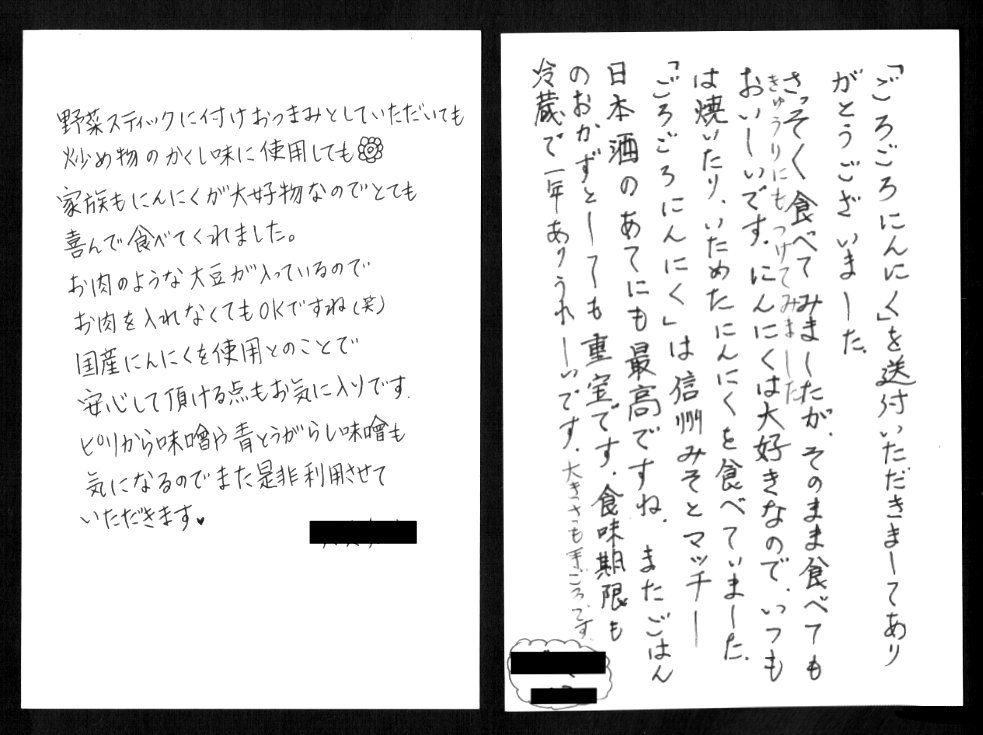 野菜スティックに付けおつまみとしていただいても
炒め物のかくし味に使用しても
家族もにんにくが大好物なのでとても
喜んで食べてくれました。
お肉のような大豆が入っているので
お肉を入れなくてもOKですね(笑)
国産にんにくを使用とのことで
安心して頂ける点もお気に入りです.
ピリから味噌や青とうがらし味噌も
気になるのでまた是非利用させて
いただきます♥
「ごろごろにんにく」を送付いただきましてあり
がとうございました。
さっそく食べてみましたが、そのまま食べても
きゅうりにもつけてみました
おいしいです。にんにくは大好きなので、いつも
は焼いたり、いためたにんにくを食べていました。
「ごろごろにんにく」は信州みそとマッチし
日本酒のあてにも最高ですね。またごはん
のおかずとしても重宝です。食味期限も
冷蔵で一年ありうれしいです。大きさも手ごろです。